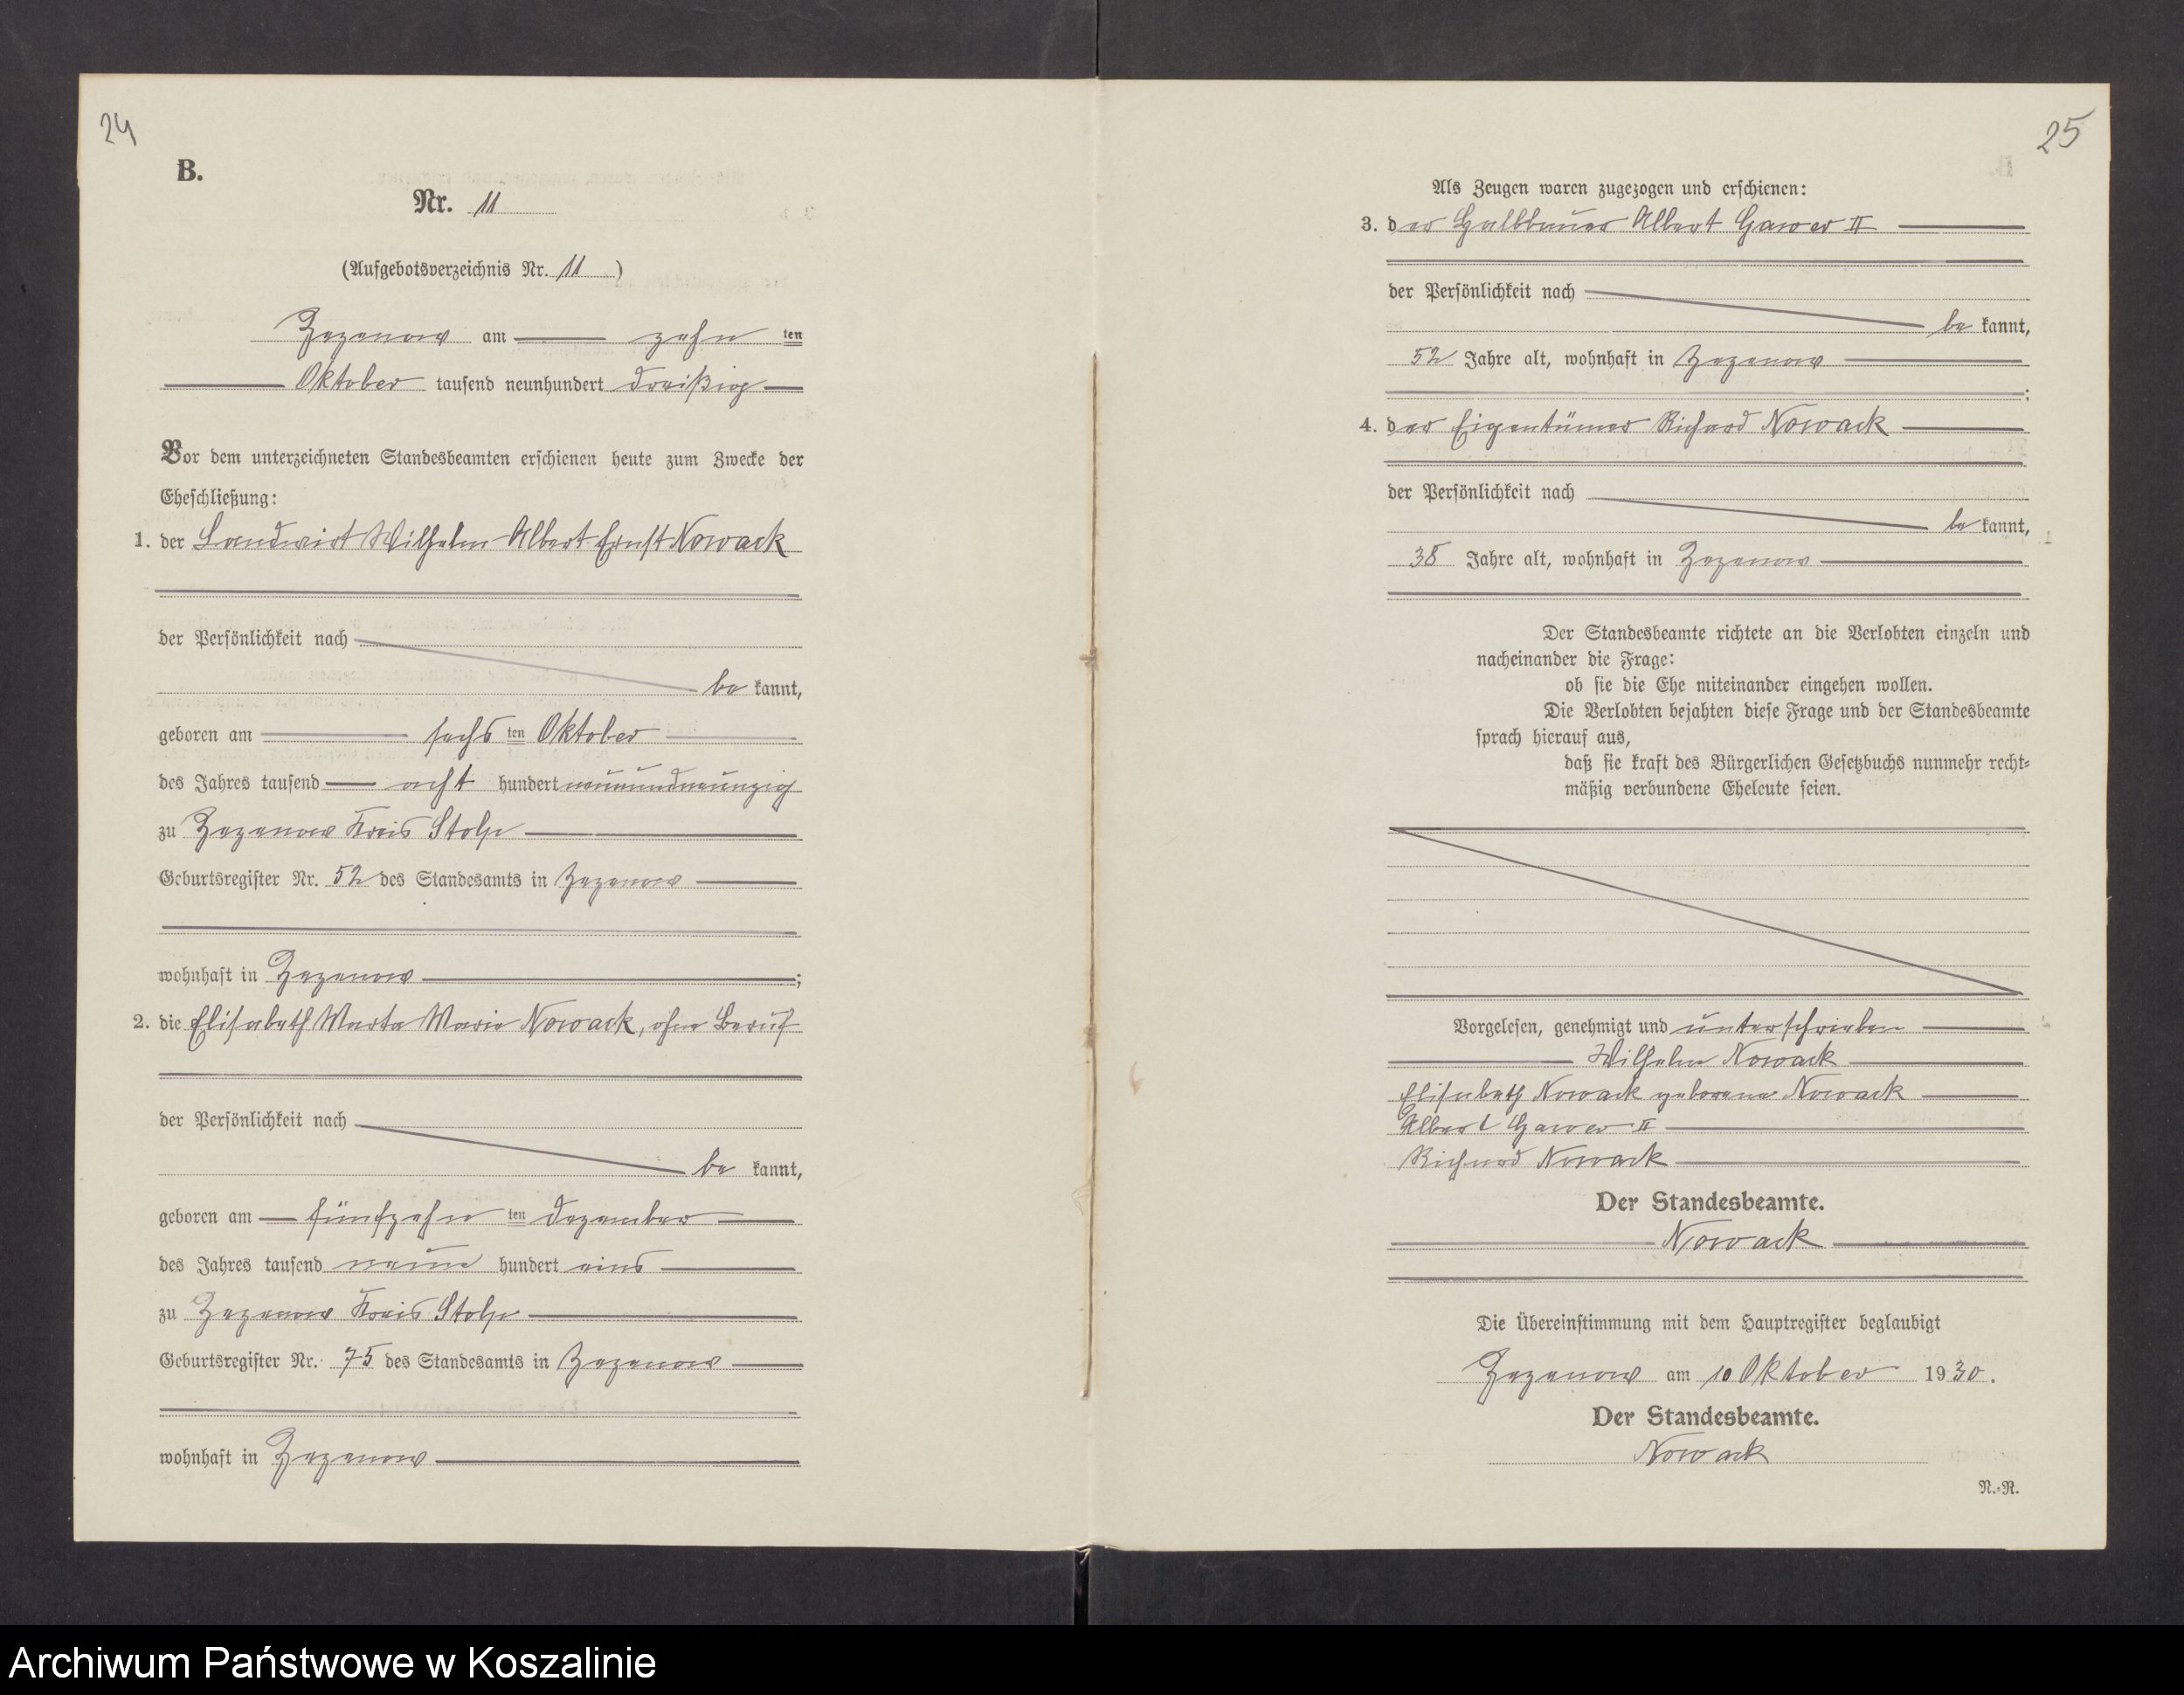 24
B.
Nr. 11
(Aufgebotsverzeichnis Nr. 11)
Zezenow am zehn ten
Oktober tausend neunhundert dreißig
Vor dem unterzeichneten Standesbeamten erschienen heute zum Zwecke der
Eheschließung:
1. der Landwirt Wilhelm Albert Ernst Nowack
der Persönlichkeit nach
be kannt,
geboren am sechs ten Oktober
des Jahres tausend acht hundert neunundneunzig
zu Zezenow Kreis Stolp
Geburtsregister Nr. 52 des Standesamts in Zezenow
wohnhaft in Zezenow ;
2. die Elisabeth Marta Marie Nowack, ohne Beruf
der Persönlichkeit nach
be kannt,
geboren am fünfzehn ten Dezember
des Jahres tausend neun hundert eins
zu Zezenow Kreis Stolp
Geburtsregister Nr. 75 des Standesamts in Zezenow
wohnhaft in Zezenow
25
Als Zeugen waren zugezogen und erschienen:
3. der Halbbauer Albert Gawer II
der Persönlichkeit nach
be kannt,
52 Jahre alt, wohnhaft in Zezenow
;
4. der Eigentümer Richard Nowack
der Persönlichkeit nach
be kannt,
38 Jahre alt, wohnhaft in Zezenow
Der Standesbeamte richtete an die Verlobten einzeln und
nacheinander die Frage:
ob sie die Ehe miteinander eingehen wollen.
Die Verlobten bejahten diese Frage und der Standesbeamte
sprach hierauf aus,
daß sie kraft des Bürgerlichen Gesetzbuchs nunmehr recht-
mäßig verbundene Eheleute seien.
Vorgelesen, genehmigt und unterschrieben
Wilhelm Nowack
Elisabeth Nowack geborene Nowack
Albert Gawer II
Richard Nowack
Der Standesbeamte.
Nowack
Die Übereinstimmung mit dem Hauptregister beglaubigt
Zezenow am 10 Oktober 1930.
Der Standesbeamte.
Nowack
N.-R.
Archiwum Państwowe w Koszalinie